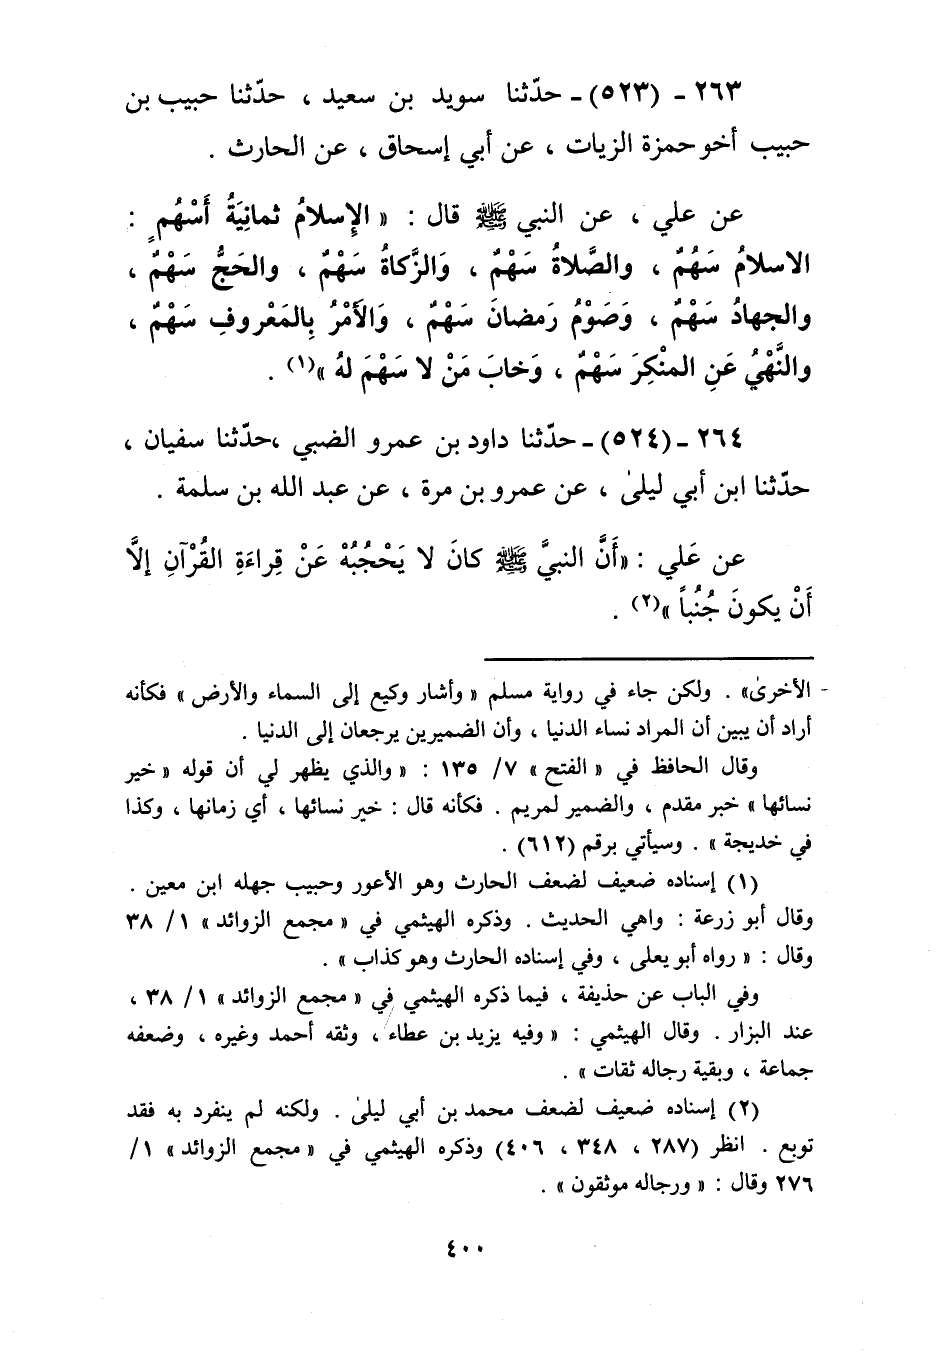 ٢٦٣ - (٥٢٣) - حدّثنا سويد بن سعيد ، حدّثنا حبيب بن
حبيب أخو حمزة الزيات ، عن أبي إسحاق ، عن الحارث .
عن علي ، عن النبي ﷺ قال : « الإِسلامُ ثمانِيَةُ أَسْهُمٍ :
الاسلامُ سَهُمٌ ، والصَّلاةُ سَهْمٌ ، وَالزَّكاةُ سَهْمٌ ، والحَجُّ سَهْمٌ ،
والجهادُ سَهْمٌ ، وَصَوْمُ رَمضانَ سَهْمٌ ، وَالأَمْرُ بِالمَعْروفِ سَهْمٌ ،
والنَّهْيُ عَنِ المنْكِرَ سَهْمٌ ، وَخابَ مَنْ لا سَهْمَ لهُ »(١) .
٢٦٤ - (٥٢٤) - حدّثنا داود بن عمرو الضبي ،حدّثنا سفيان ،
حدّثنا ابن أبي ليلىٰ ، عن عمرو بن مرة ، عن عبد الله بن سلمة .
عن عَلي : «أَنَّ النبيَّ ﷺ كانَ لا يَحْجُبُهْ عَنْ قِراءَةِ القُرْآنِ إلَّا
أَنْ يكونَ جُنُباً »(٢) .
- الأخرىٰ» . ولكن جاء في رواية مسلم « وأشار وكيع إلى السماء والأرض » فكأنه
أراد أن يبين أن المراد نساء الدنيا ، وأن الضميرين يرجعان إلى الدنيا .
وقال الحافظ في « الفتح » ٧/ ١٣٥ : « والذي يظهر لي أن قوله « خير
نسائها » خبر مقدم ، والضمير لمريم . فكأنه قال : خير نسائها ، أي زمانها ، وكذا
في خديجة » . وسيأتي برقم (٦١٢) .
(١) إسناده ضعيف لضعف الحارث وهو الأعور وحبيب جهله ابن معين .
وقال أبو زرعة : واهي الحديث . وذكره الهيثمي في « مجمع الزوائد » ١/ ٣٨
وقال : « رواه أبو يعلى ، وفي إسناده الحارث وهو كذاب » .
وفي الباب عن حذيفة ، فيما ذكره الهيثمي في « مجمع الزوائد » ١/ ٣٨ ،
عند البزار . وقال الهيثمي : « وفيه يزيد بن عطاء ، وثقه أحمد وغيره ، وضعفه
جماعة ، وبقية رجاله ثقات » .
(٢) إسناده ضعيف لضعف محمد بن أبي ليلىٰ . ولكنه لم ينفرد به فقد
توبع . انظر (٢٨٧ ، ٣٤٨ ، ٤٠٦) وذكره الهيثمي في « مجمع الزوائد » ١/
٢٧٦ وقال : « ورجاله موثقون » .
٤٠٠